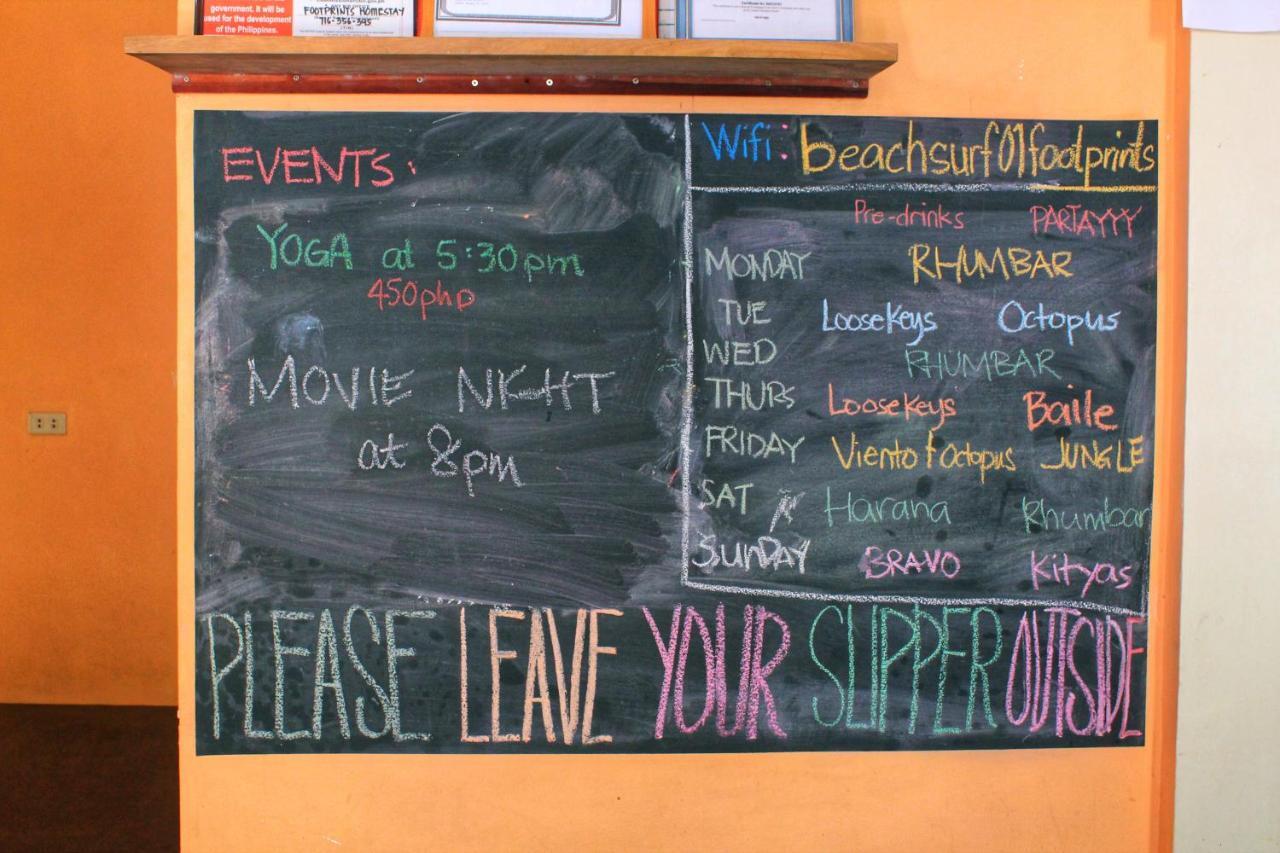 government. It will be
used for the development
of the Philippines.
FOOTPRINTS HOMESTAY
716-356-395
EVENTS:
YOGA at 5:30pm
450php
MOVIE NIGHT
at 8pm
Wifi: beachsurf01footprints
Pre-drinks PARTAYYY
MONDAY RHUMBAR
TUE LooseKeys Octopus
WED RHUMBAR
THURS LooseKeys Baile
FRIDAY Viento / Octopus JUNGLE
SAT Harana Rhumbar
SUNDAY BRAVO Kityas
PLEASE LEAVE YOUR SLIPPER OUTSIDE